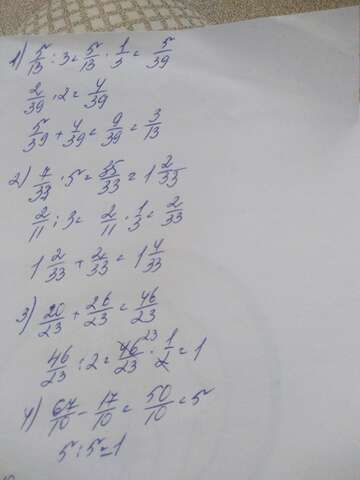 1) 5/13 : 3 = 5/13 · 1/3 = 5/39
2/39 · 2 = 4/39
5/39 + 4/39 = 9/39 = 3/13
2) 7/33 · 5 = 35/33 = 1 2/33
2/11 : 3 = 2/11 · 1/3 = 2/33
1 2/33 + 2/33 = 1 4/33
3) 20/23 + 26/23 = 46/23
46/23 : 2 = 46/23 23 · 1/2 = 1
4) 67/10 - 17/10 = 50/10 = 5
5 : 5 = 1